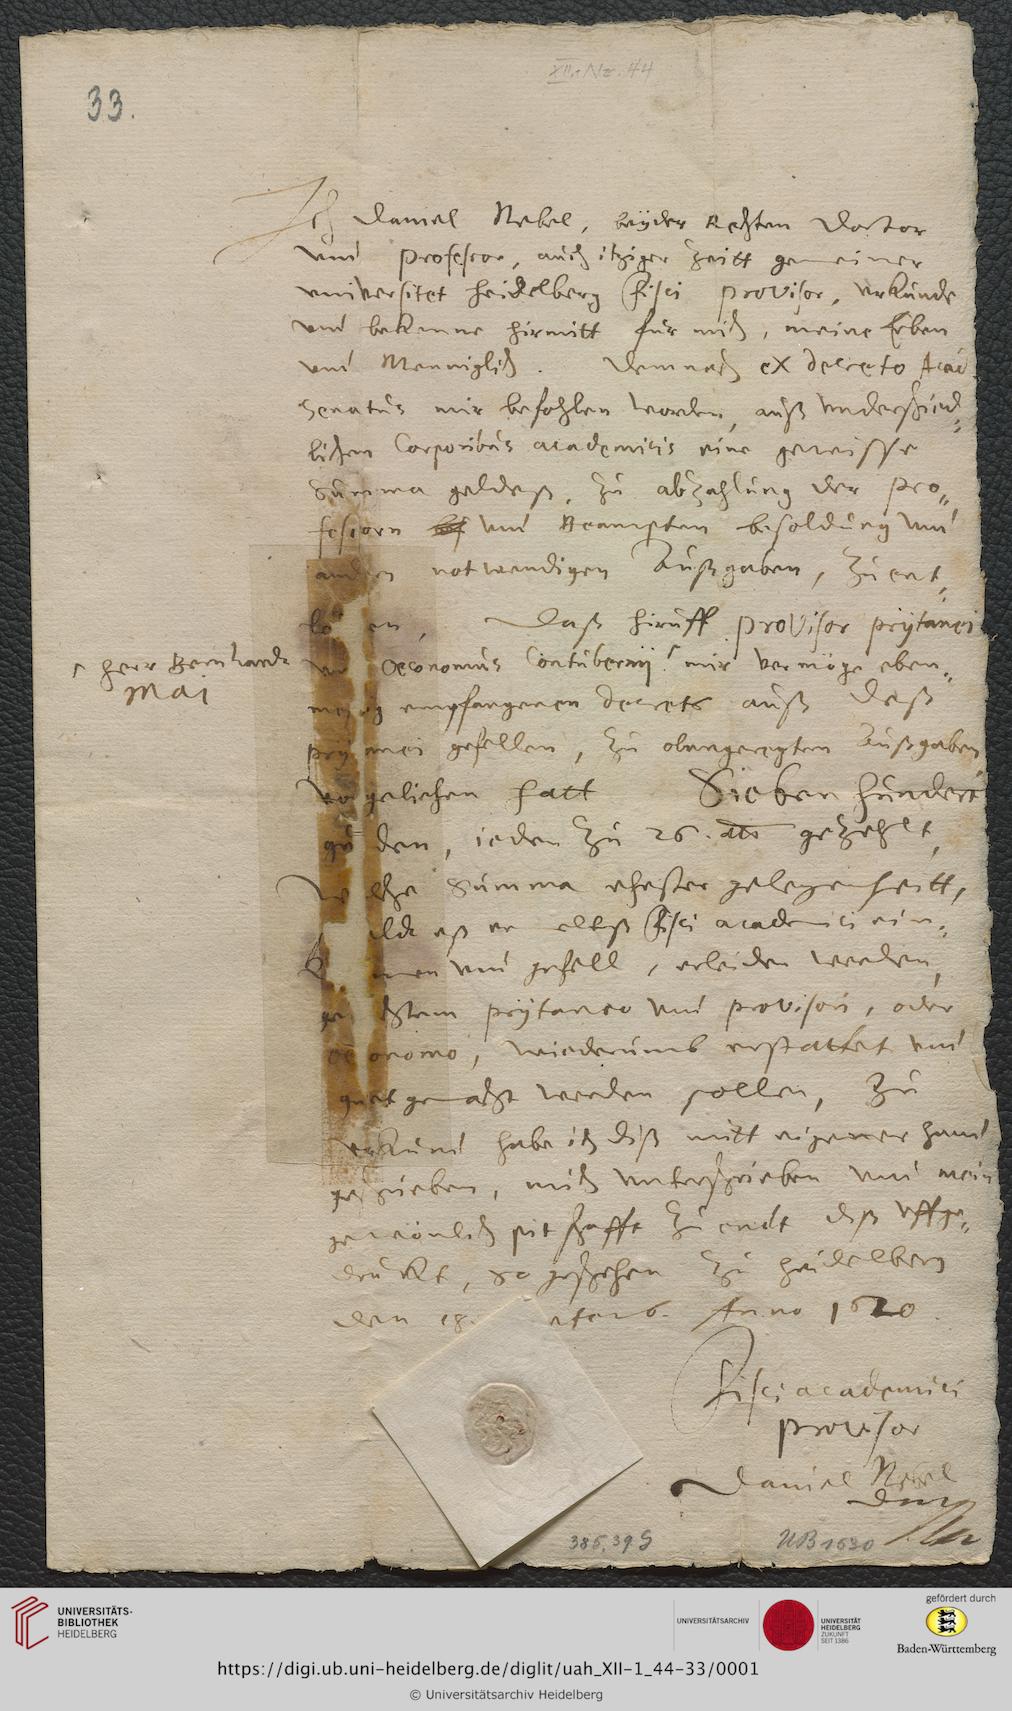 XII, Nr. 44
33.
Ich Daniel Nebel, beyder Rechten Doctor
und Professor, auch itziger Zeitt gemeiner
universitet Heidelberg Fisci provisor, urkunde
und bekenne hirmitt für mich, meine Erben
und Menniglich. Demnach ex decreto Acad.
Senatus mir befohlen worden, auß underschied-
lichen Corporibus academicis eine gewisse
Summa geldeß, zu abzahlung der pro-
fessorn und Beampten besoldung und
andern notwendigen Außgaben, zu ent-
Daß hiruff provisor prytanei
und Oeconomus Contubernij mir vermöge eben-
herr Bernhardt
Mai
meßig empfangenen decrets auß deß
prytanei gefellen, zu obangeregten Außgaben
vorgeliehen hatt Sieben hundert
gulden, ieden zu 26. alb. gezehlt,
Welche Summa ehester gelegenheitt,
fisci academici ein-
kommen und gefell, erleiden werden,
prytaneo und provisori, oder
oeconomo, wiederumb erstattet und
guet gemacht werden sollen, Zu
urkund habe ich diß mitt eigener hand
geschrieben, mich unterschrieben und mein
gewönlich pitschafft zu endt diß uffge-
druckt, So geschehen zu Heidelberg
den 18. Anno 1620.
Fisci academici
provisor
Daniel Nebel
386,39 G
UB 1620
UNIVERSITÄTS-
BIBLIOTHEK
HEIDELBERG
UNIVERSITÄTSARCHIV
UNIVERSITÄT
HEIDELBERG
ZUKUNFT
SEIT 1386
gefördert durch
Baden-Württemberg
https://digi.ub.uni-heidelberg.de/diglit/uah_XII-1_44-33/0001
© Universitätsarchiv Heidelberg